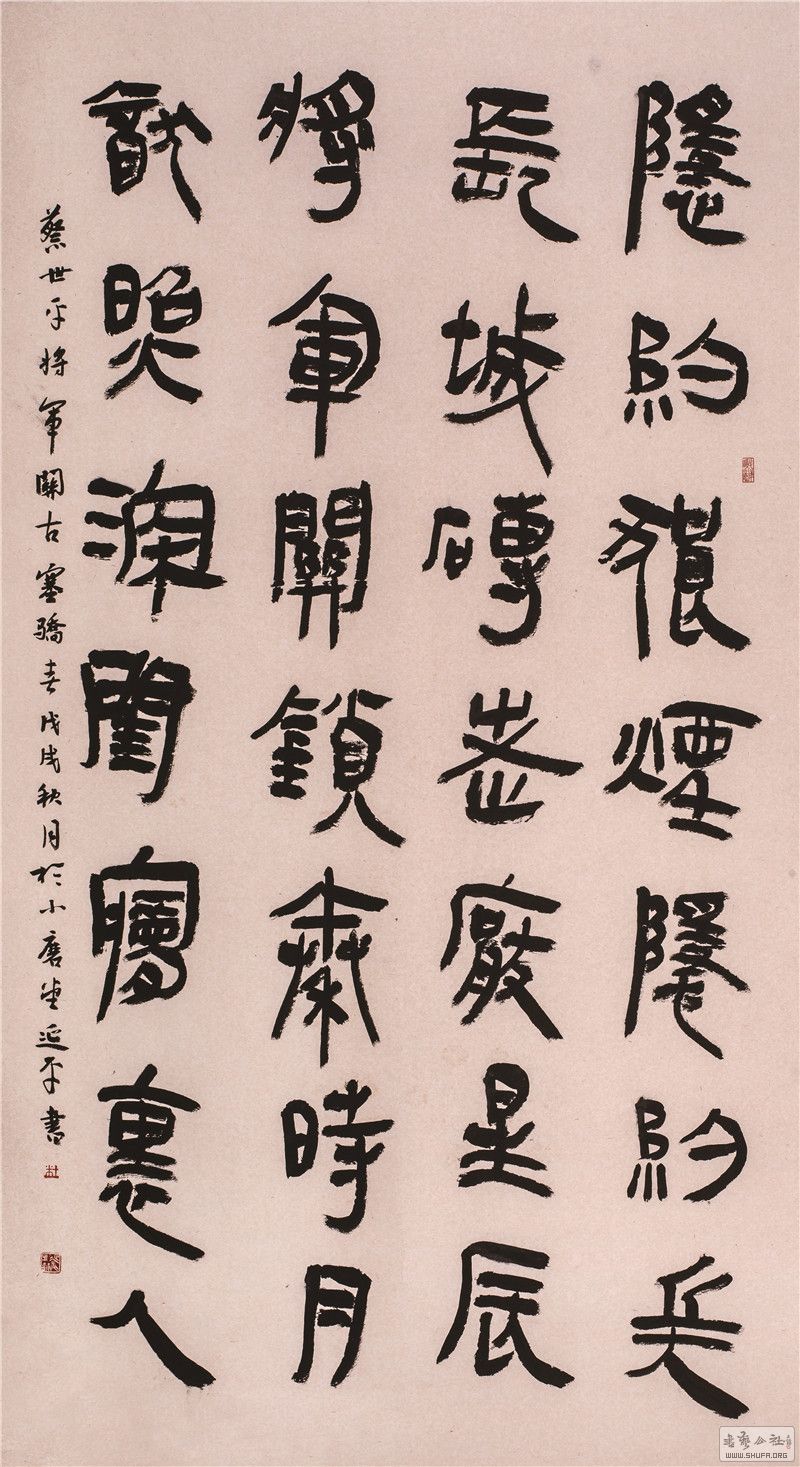 隱約狼煙隱約兵
長城磚老厰星辰
將軍關鎖秦時月
猷照深閨夢裏人
蔡世平將軍關古塞驕春戊戌秋月於小唐堂延平書
書藝公社
WWW.SHUFA.ORG